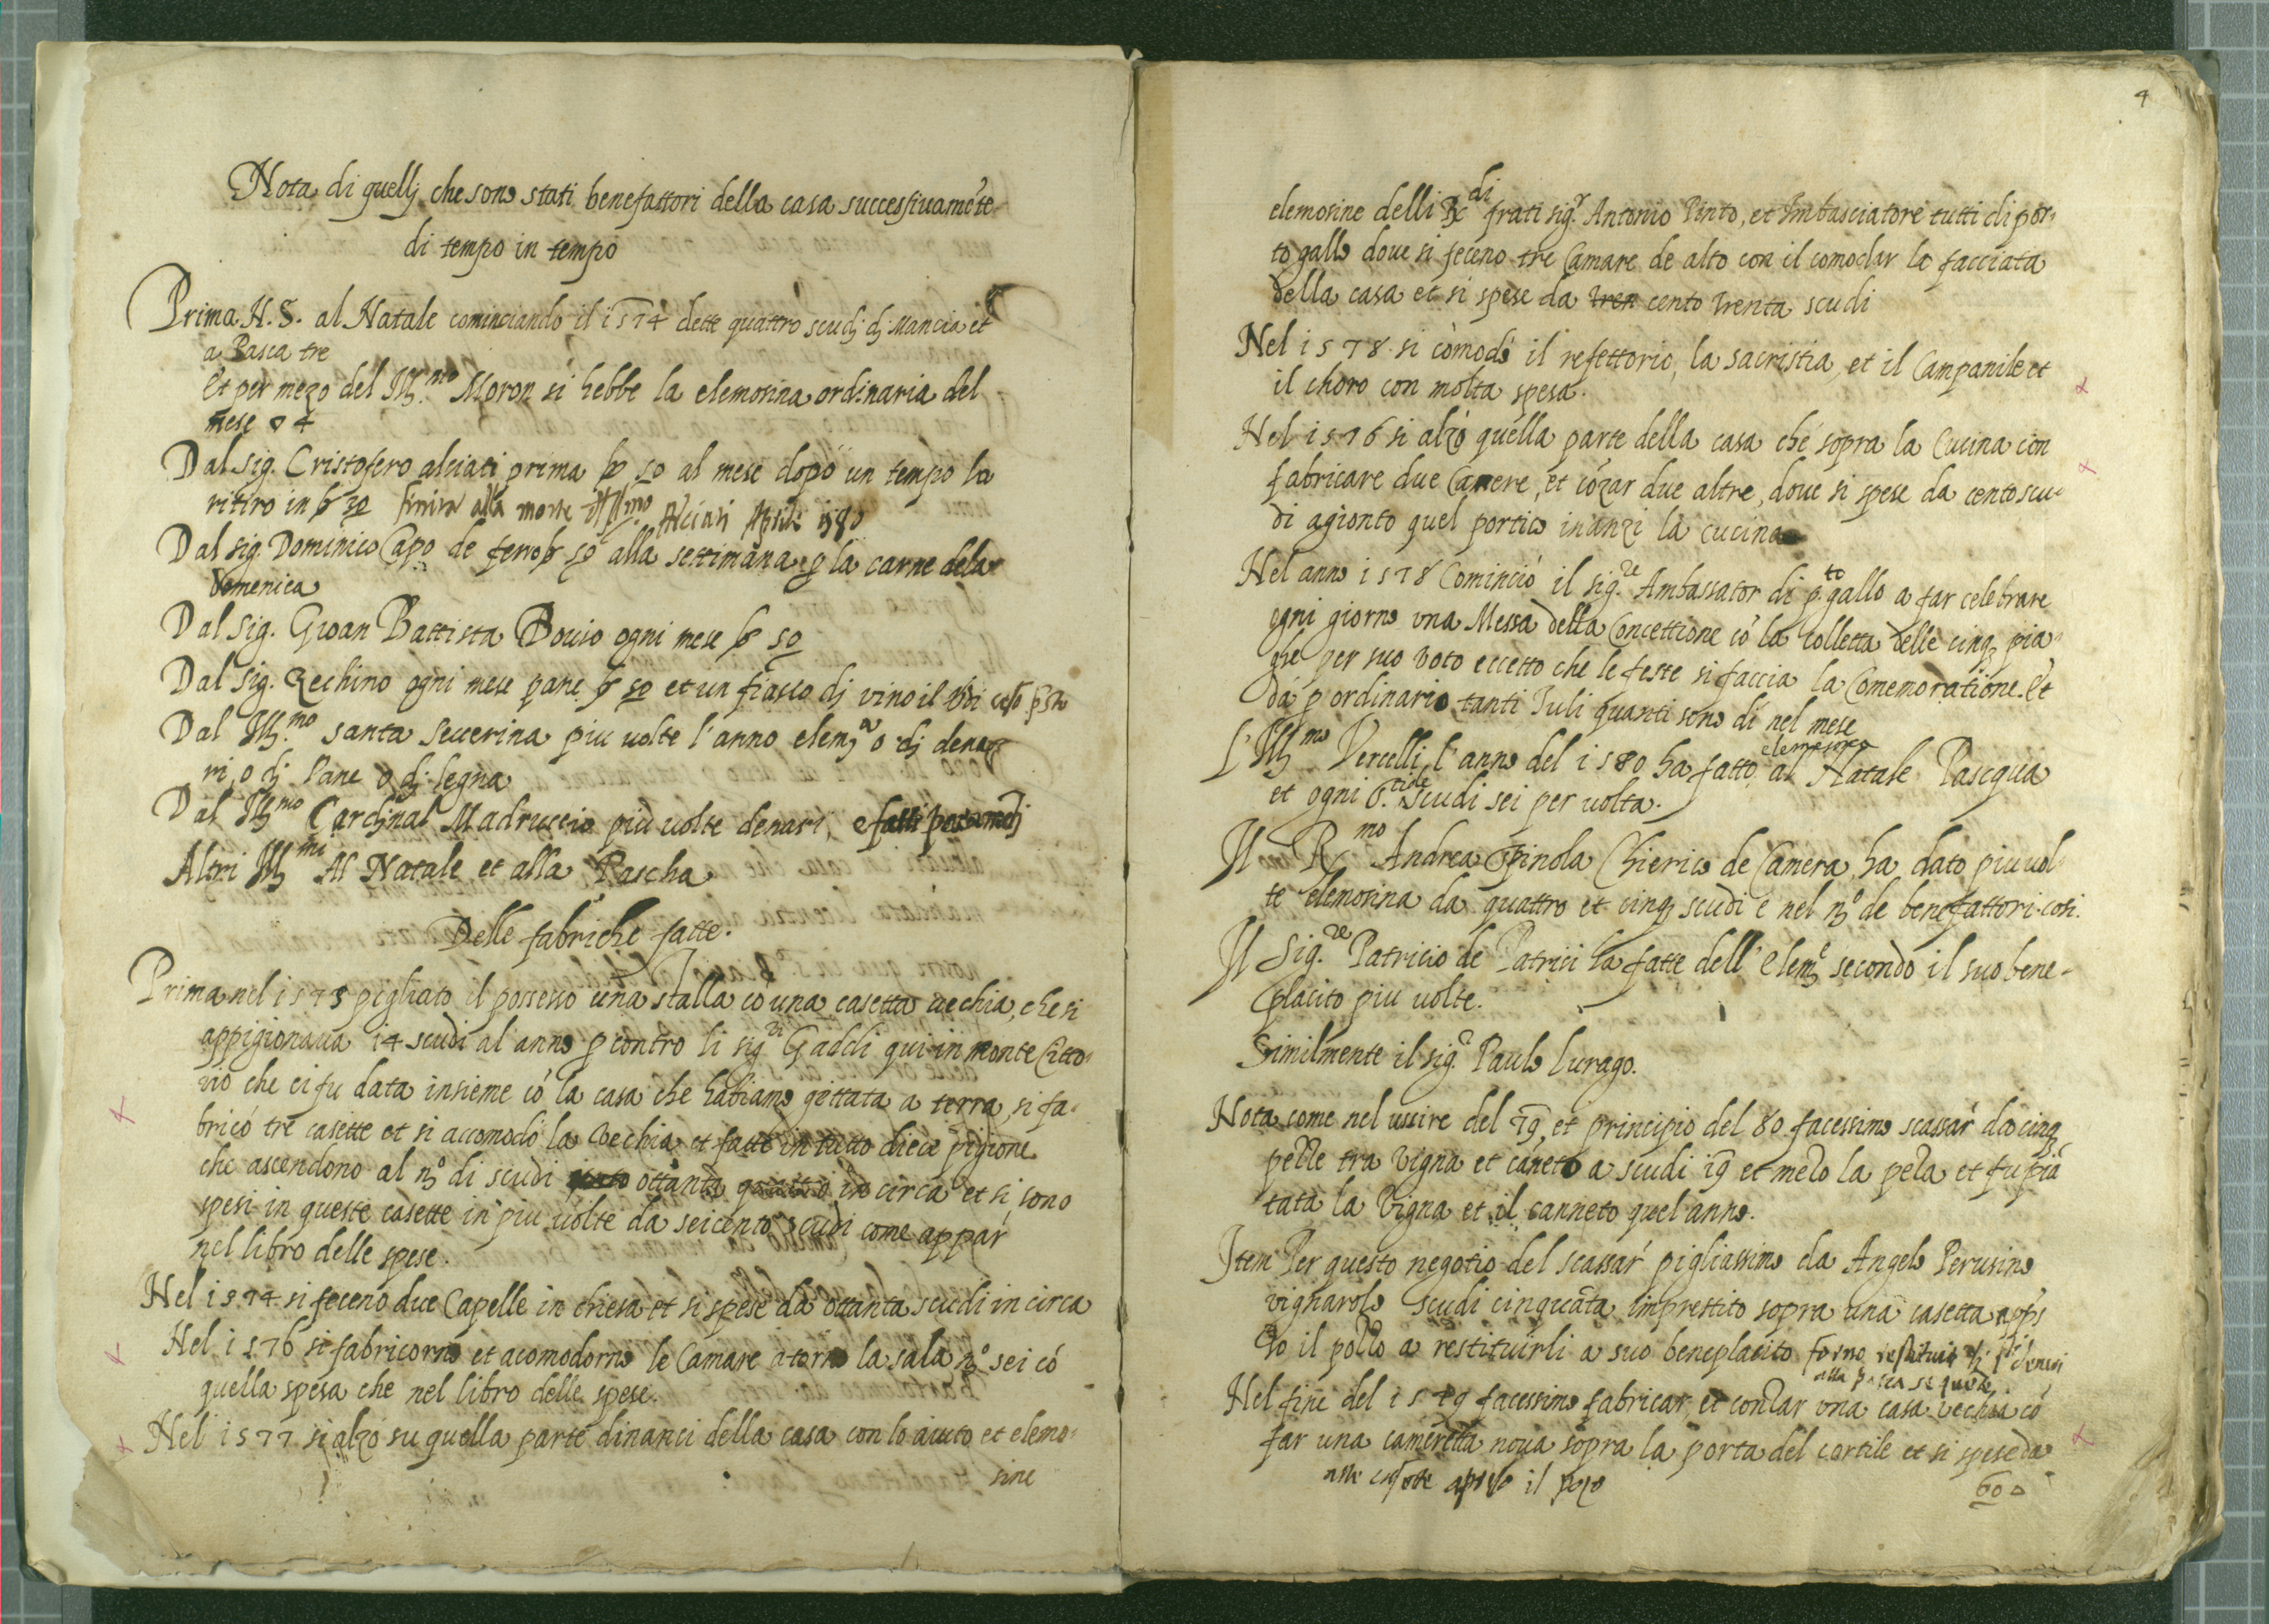 Nota di quellj che sono stati benefattori della casa successiuamẽte
di tempo in tempo
Prima N. S. al Natale cominciando il 1574 dette quattro scudj dj Mancia et
a Pasca tre
Et per mezo del Ill.mo Moron si hebbe la elemosina ordinaria del
mese 4
Dal sig. Cristofero alciati prima b 50 al mese dopo un tempo la
ritiro in b 30 finira alla morte Ill.mo Alciati Aprile 1580
Dal sig. Dominico Capo de ferro b 50 alla settimana p la carne dela
Domenica
Dal sig. Gioan Battista Bouio ogni mese b 50
Dal sig. Zechino ogni mese pane b 50 et un fiasco dj vino il dì
Dal Ill.mo santa seuerina piu uolte l'anno elem.a o dj dena
ri, o dj Pane o dj legna
Dal Ill.mo Cardjnal Madruccio più uolte denari,
Altri Ill.mi Al Natale et alla Pascha
Delle fabriche fatte.
Prima nel 1573 pigliato il possesso una stalla cō una casetta uechia, che si
appigionaua 14 scudi al anno p contro li sig.ri Gaddi qui in monte Citto
rio che ci fu data insieme cō la casa che habiamo gittata a terra, si fa
bricò tre casette et si accomodò la Vechia et fatte in tutto diece pigione
che ascendono al n.o di scudi ottanta in circa et si sono
spesi in queste casette in piu uolte da seicento scudi come appar
nel libro delle spese.
Nel 1574 si feceno due Capelle in chiesa et si spese da ottanta scudi in circa
Nel 1576 si fabricorno et acomodorno le Camare atorno la sala n.o sei cō
quella spesa che nel libro delle spese.
Nel 1577 si alzò su quella parte dinanci della casa con lo aiuto et elemo
sine
4
elemosine delli di frati sig.r Antonio Pinto, et Imbasciatore tutti di por
to gallo doue si feceno tre Camare de alto con il comodar la facciata
della casa et si spese da tren cento trenta scudi
Nel 1578 si còmodò il refettorio, la sacristia, et il Campanile et
il choro con molta spesa.
Nel 1576 si alzò quella parte della casa ché sopra la Cucina con
fabricare due Camere, et cōzar due altre, doue si spese da cento scu
di agionto quel portico inanzi la cucina
Nel anno 1578 Cominciò il sig.re Ambassator di p.to gallo a far celebrare
ogni giorno una Messa della Concettione cō la colletta delle cinq pia
ghe per suo Voto eccetto che le feste si faccia la Comemoratione. Et
dà p ordinario tanti Iuli quanti sono dì nel mese
L'Ill.mo Vercelli l'anno del 1580 ha fatto elemosina al Natale Pascqua
et ogni scudi sei per uolta.
Il R.mo Andrea Spinola Chierico de Camera ha dato piu uol
te elemosina da quattro et cinq scudi e nel n.o de benefattori cosi.
Il Sig.re Patricio de Patrici ha fatte dell' elem.e secondo il suo bene
placito piu uolte.
Similmente il sig.r Paulo lurago.
Nota come nel ussire del 79, et principio del 80 facessimo scassar da cinq
pezze tra Vigna et caneto a scudi 19 et mezo la peza et fu piā
tata la Vigna et il canneto quel anno.
Item Per questo negotio del scassar pigliassimo da Angelo Perusino
vignarolo scudi cinquāta imprestito sopra una casetta apps
so il pozzo a restituirli a suo beneplacito forno restituiti denari
alla pasca
Nel fine del 1579 facessimo fabricar, et conzar una casa vechia cō
far una cameretta noua sopra la porta del cortile et si spese da
alle casette apresso il pozo
60